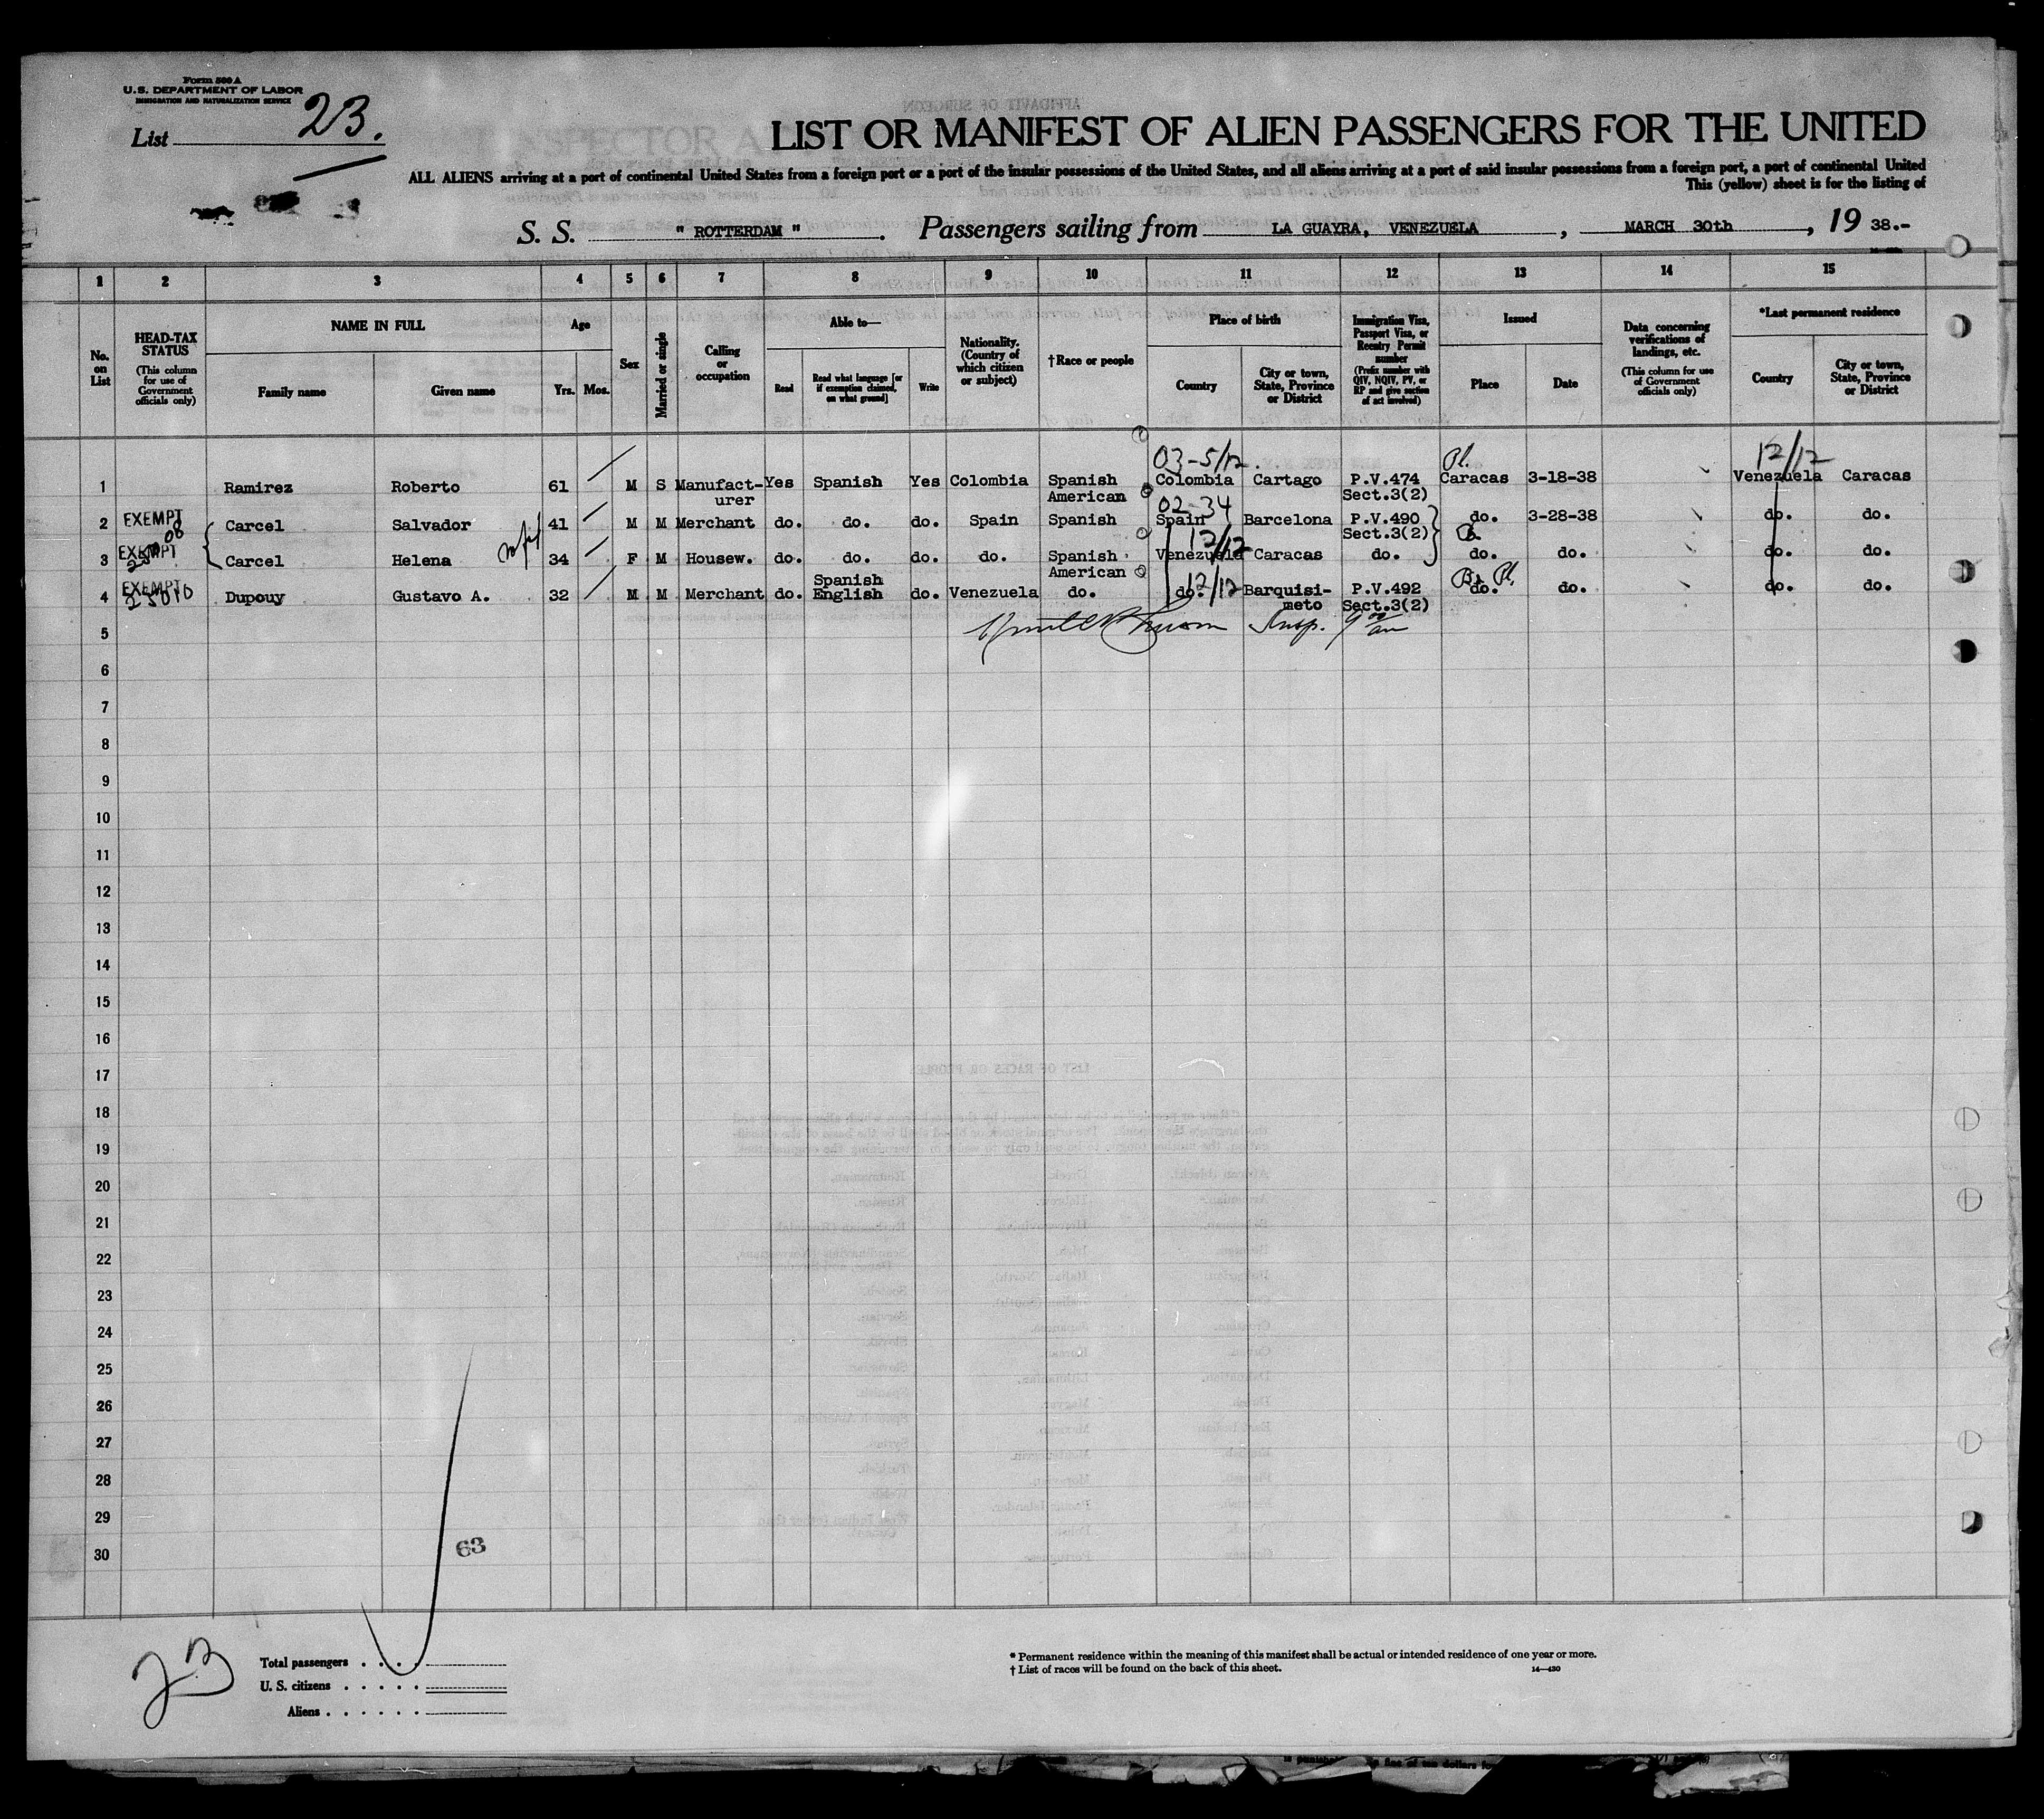 Form 500 A
U.S. DEPARTMENT OF LABOR
IMMIGRATION AND NATURALIZATION SERVICE
List 23.
LIST OR MANIFEST OF ALIEN PASSENGERS FOR THE UNITED
ALL ALIENS arriving at a port of continental United States from a foreign port or a port of the insular possessions of the United States, and all aliens arriving at a port of said insular possessions from a foreign port, a port of continental United
This (yellow) sheet is for the listing of
S. S. " ROTTERDAM ". Passengers sailing from LA GUAYRA, VENEZUELA, MARCH 30th, 19 38.-
1 2 3 4 5 6 7 8 9 10 11 12 13 14 15
No. on List
HEAD-TAX STATUS (This column for use of Government officials only)
NAME IN FULL
Family name Given name
Age
Yrs. Mos.
Sex
Married or single
Calling or occupation
Able to—
Read Read what language [or if exemption claimed, on what ground] Write
Nationality. (Country of which citizen or subject)
†Race or people
Place of birth
Country City or town, State, Province or District
Immigration Visa, Passport Visa, or Reentry Permit number (Prefix number with QIV, NQIV, PV, or RP and give section of act involved)
Issued
Place Date
Data concerning verifications of landings, etc. (This column for use of Government officials only)
*Last permanent residence
Country City or town, State, Province or District
03-5/12. Pl. 12/12
1 Ramirez Roberto 61 M S Manufact- Yes Spanish Yes Colombia Spanish Colombia Cartago P.V.474 Caracas 3-18-38 Venezuela Caracas
urer American Sect.3(2)
02-34
2 EXEMPT Carcel Salvador 41 M M Merchant do. do. do. Spain Spanish Spain Barcelona P.V.490 do. 3-28-38 do. do.
Sect.3(2)
12/12
3 EXEMPT Carcel Helena 34 F M Housew. do. do. do. do. Spanish Venezuela Caracas do. do. do. do. do.
American
Spanish 12/12 Pl.
4 EXEMPT 25010 Dupouy Gustavo A. 32 M M Merchant do. English do. Venezuela do. do. Barquisi- P.V.492 do. do. do. do.
meto Sect.3(2)
Insp. 9 00 am
5
6
7
8
9
10
11
12
13
14
15
16
17
18
19
20
21
22
23
24
25
26
27
28
29
30
63
23
Total passengers
U. S. citizens
Aliens
* Permanent residence within the meaning of this manifest shall be actual or intended residence of one year or more.
† List of races will be found on the back of this sheet. 14—430